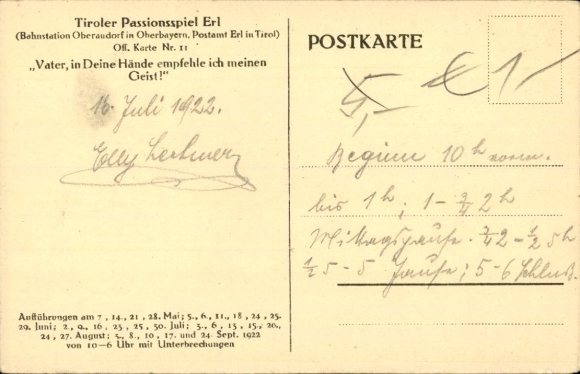 Tiroler Passionsspiel Erl
(Bahnstation Oberaudorf in Oberbayern. Postamt Erl in Tirol)
Off. Karte Nr. 11
„Vater, in Deine Hände empfehle ich meinen
Geist!“
16. Juli 1922.
Elly
Aufführungen am 7., 14., 21., 28. Mai; 5., 6., 11., 18., 24., 25.,
29. Juni; 2., 9., 16., 23., 25., 30. Juli; 3., 6., 13., 15., 20.,
24., 27. August; 3., 8., 10., 17. und 24. Sept. 1922
von 10—6 Uhr mit Unterbrechungen
POSTKARTE
5,-
€ 1,-
Beginn 10 h vorm.
bis 1 h; 1 - 3/4 2 h
Mittagspause. 3/4 2 - 1/2 5 h
1/2 5 - 5 Pause; 5-6 Schluß.